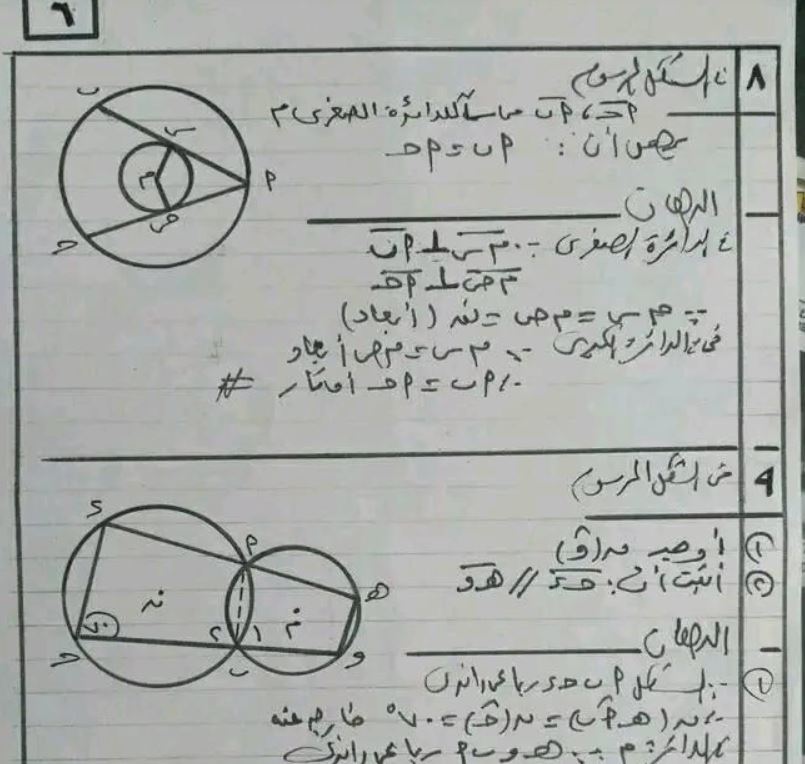 ٦
٨
في الشكل المرسوم
أب ، أحـ مماسان للدائرة الصغرى م
برهن أن : أب = أحـ
البرهان
في الدائرة الصغرى ∵ م س ⊥ أب
م ص ⊥ أحـ
∵ م س = م ص = نق (أبعاد)
في الدائرة الكبرى ∵ م س = م ص أبعاد
∴ أب = أحـ أوتار #
ب
س
م
أ
ص
حـ
٩
في الشكل المرسوم
١ أوجد ق(و)
٢ أثبت أن : حـ د // هـ و
البرهان
١ ∵ الشكل أ ب حـ د رباعي دائري
∴ ق(هـ أ ب) = ق(حـ) = ٧٠° خارجه عنه
في الدائرة م ∵ هـ و ب أ رباعي دائري
د
أ
هـ
ن
م
٧٠
٢
١
حـ
ب
و